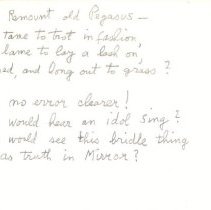 Remount old Pegasus —
tame to trot in fashion,
lame to lay a lash on,
ed, and long out to grass?
no error clearer!
would hear an idol sing?
would see this bridle thing
as truth in Mirror?